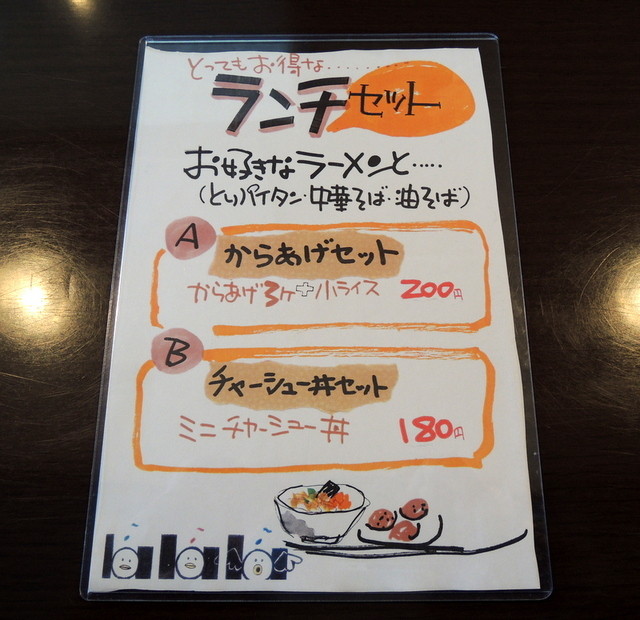 とってもお得な.........
ランチセット
お好きなラーメンと.....
(とりパイタン・中華そば・油そば)
A
からあげセット
からあげ3ヶ+小ライス 200円
B
チャーシュー丼セット
ミニチャーシュー丼 180円